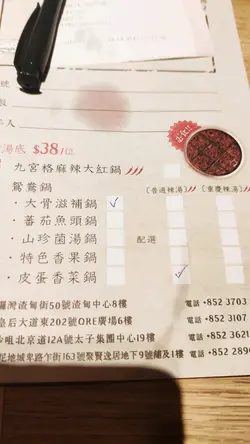 號
人
湯底 $38/位
九宮格麻辣大紅鍋
鴛鴦鍋 (普通辣湯) (重慶辣湯)
· 大骨滋補鍋
· 蕃茄魚頭鍋
· 山珍菌湯鍋 配選
· 特色香果鍋
· 皮蛋香菜鍋
灣渣甸街50號渣甸中心8樓 電話 +852 3703
皇后大道東202號QRE廣場6樓 電話 +852 3107
咀北京道12A號太子集團中心19樓 電話 +852 3621
地城卑路乍街163號聚賢逸居地下9號舖及1樓 電話 +852 289